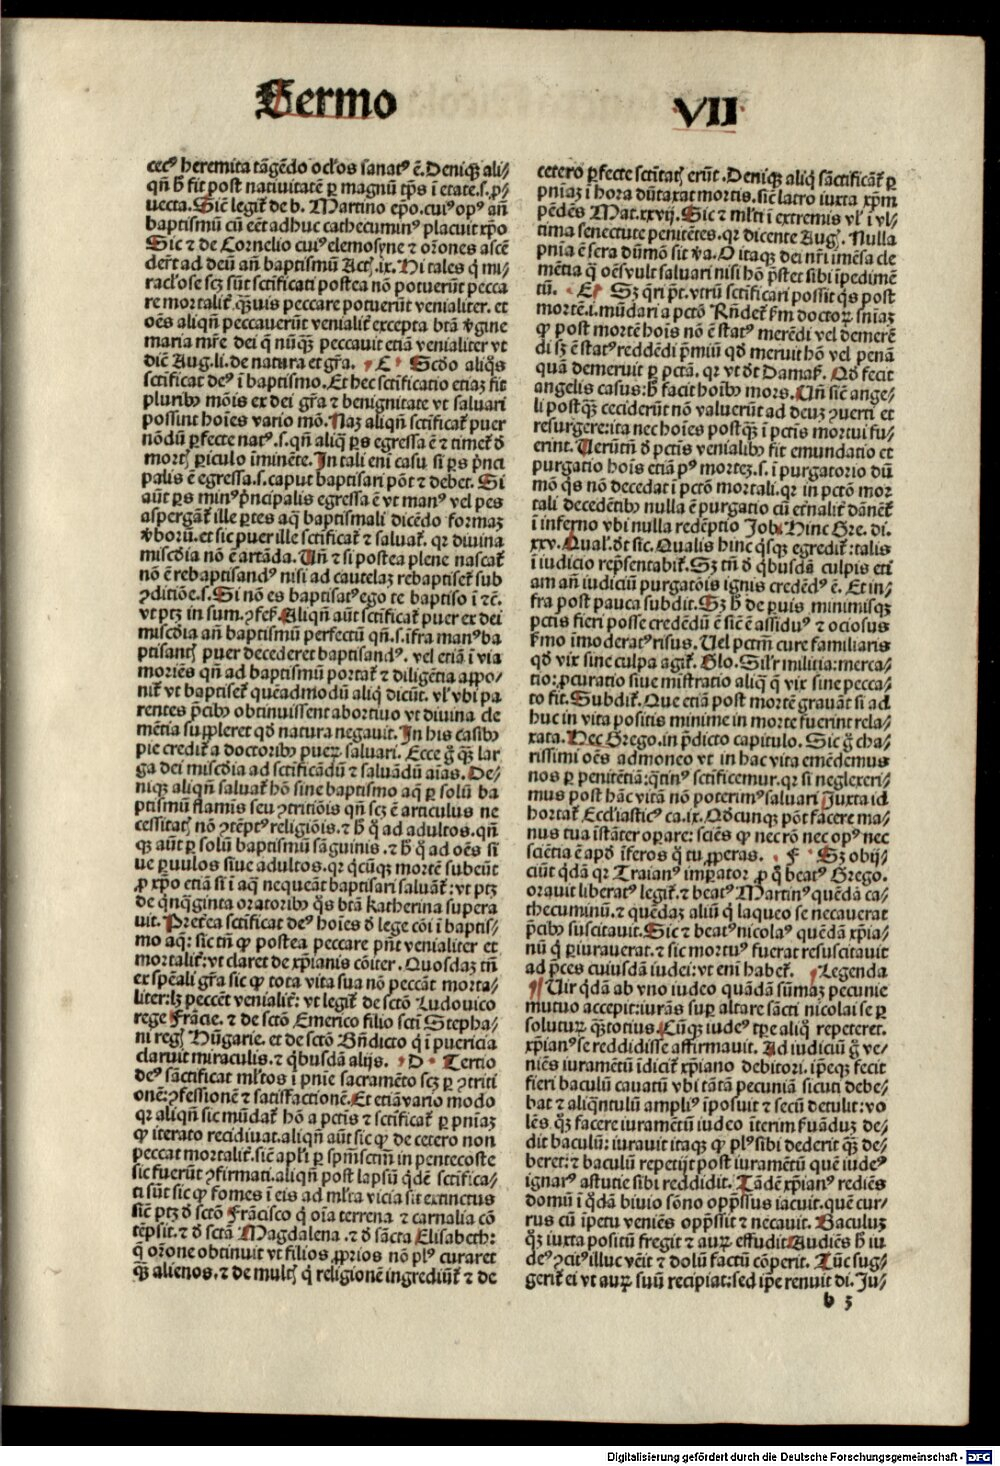 Sermo
VII
cecꝰ heremita tāgēdo oclos sanatꝰ ē. Deniqꝫ ali/
qñ ħ fit post natiuitatē ꝑ magnū tp̄s ī etate.s.ꝓ/
uecta. Sic̄ legit᷑ de b. Martino ep̄o. cuiꝰ opꝰ añ
baptismū cū eēt adhuc cathecuminꝰ placuit xp̄o
Sic ⁊ de Cornelio cuiꝰ elemosyne ⁊ or̄ones ascē
der̄t ad deū añ baptismū Act̄.ix. Hi tales q̇ mi/
racl'ose scꝫ sūt sctīficati postea nō potuer̄ut pecca
re mortalit᷑. qꝫuis peccare potuer̄ut venialiter. et
oēs aliqñ peccauer̄ut venialit᷑ excepta btā v̄gine
maria mr̄e dei q̄ nūqꝫ peccauit etiā venialiter vt
dic̄ Aug.li. de natura et gr̄a. C Scd̄o aliq̄s
sctīficat deꝰ ī baptismo. Et hec sctīficatio etiaꝫ fit
pluribꝰ mōis ex dei gr̄a ⁊ benignitate vt saluari
possint hoīes vario mō. Naꝫ aliqñ sctīficat᷑ puer
nōdū ꝑfecte natꝰ.s.qñ aliq̄ ꝑs egressa ē ⁊ timet᷑ d̄
mort̄ ꝑiculo īminēte. In tali eni casu si ꝑs p̄nci
palis ē egressa.s.caput baptisari pōt ⁊ debet. Si
aūt ꝑs minꝰ p̄ncipalis egressa ē vt manꝰ vel pes
aspergāt᷑ ille ꝑtes aq̄ baptismali dicēdo formaꝫ
v̄borū. et sic puer ille sctīficat᷑ ⁊ saluat᷑. qr diuina
misc̄dia nō ē artāda. Uñ ⁊ si postea plene nascat᷑
nō ē rebaptisandꝰ nisi ad cautelaꝫ rebaptiset᷑ sub
ꝯditiōe.s. Si nō es baptisatꝰ ego te baptiso ī ⁊c̄.
vt ptꝫ in sum.ꝯfes̄. Aliqñ aūt sctīficat᷑ puer ex dei
misc̄dia añ baptismū perfectū qñ.s.īfra manꝰ ba
ptisant̄ puer decederet baptisandꝰ. vel etiā ī via
moriēs qñ ad baptismū portat᷑ ⁊ diligētia appo/
nit᷑ vt baptiset᷑ quēadmodū aliq̄ dicūt. vl' vbi pa
rentes p̄cibꝰ obtinuissent abortiuo vt diuina cle
mētia suppleret qd̄ natura negauit. In his casibꝰ
pie credit᷑ a doctoribꝰ pueꝝ saluari. Ecce g̊ qꝫ lar
ga dei misc̄dia ad sctīficādū ⁊ saluādū aīas. De/
niqꝫ aliqñ saluat᷑ hō sine baptismo aq̄ ꝑ solū ba
ptismū flaminis seu ꝯtritiōis qñ scꝫ ē articulus ne
cessitat̄ nō ꝯtēptꝰ religiōis. ⁊ ħ q̊ ad adultos. qñ
qꝫ aūt ꝑ solū baptismū sāguinis. ⁊ ħ q̊ ad oēs si
ue ꝑuulos siue adultos. qr q̄cūqꝫ mortē subeūt
ꝓ xp̄o etiā si ī aq̄ nequeāt baptisari saluāt᷑: vt ptꝫ
de q̄nq̄ginta oratoribꝰ q̄s btā Katherina supera
uit. Pretea sctīficat deꝰ hoīes d̄ lege cōi ī baptis/
mo aq̄: sic tn̄ ꝙ postea peccare pn̄t venialiter et
mortalit᷑: vt claret de xp̄ianis cōiter. Quosdaꝫ tn̄
ex spēali gr̄a sic ꝙ tota vita sua nō peccāt morta/
liter: lꝫ peccēt venialit᷑: vt legit᷑ de sctō Ludouico
rege Frācie. ⁊ de sctō Emerico filio sctī Stepha/
ni reḡ Hūgarie. et de sctō Bn̄dicto q̇ ī puericia
claruit miraculis. ⁊ q̇busdā alijs. D Tertio
deꝰ sāctificat ml'tos ī pnīe sacramēto scꝫ ꝑ ꝯtriti
onē: ꝯfessionē ⁊ satisfactionē. Et etiā vario modo
qr aliqñ sic mūdat᷑ hō a pctīs ⁊ sctīficat᷑ ꝑ pnīaꝫ
ꝙ iterato recidiuat. aliqñ aūt sic ꝙ de cetero non
peccat mortalit᷑. sic̄ apl'i ꝑ spm̄sctm̄ in pentecoste
sic fuer̄ut ꝯfirmati. aliqñ post lapsū q̇dē sctīfica/
ti sūt sic ꝙ fomes ī eis ad ml'ta vicia sit extinctus
sic̄ ptꝫ d̄ sctō Frācisco q̇ oīa terrena ⁊ carnalia cō
tēpsit. ⁊ d̄ sctā Magdalena. ⁊ d̄ sācta Elisabeth:
q̄ or̄one obtinuit vt filios ꝓprios nō plꝰ curaret
qꝫ alienos. ⁊ de mult̄ q̇ religionē ingrediūt᷑ ⁊ de
cetero ꝑfecte sctītat̄ er̄ut. Deniqꝫ aliq̇ sāctificāt᷑ ꝑ
pnīaꝫ ī hora dūtaxat mortis. sic̄ latro iuxta xp̄m
pēdēs Mat.xxvij. Sic ⁊ ml'ti ī extremis vl' ī vl/
tima senectute penitētes. qr dicente Auḡ. Nulla
pnīa ē sera dūmō sit v̄a. O itaqꝫ dei nr̄i īmēsa cle
mētia q̄ oēs vult saluari nisi hō p̄stet sibi īpedimē
tū. E Sꝫ q̄ri p̄t. vtrū sctīficari possit q̇s post
mortē.i.mūdari a pctō Rn̄det᷑ ẜm doctoꝝ sn̄iaꝫ
ꝙ post mortē hoīs nō ē statꝰ merēdi vel demerē
di sꝫ ē statꝰ reddēdi p̄miū qd̄ meruit hō vel penā
quā demeruit ꝑ pctā. qr vt d̄t Damas̄. Qd̄ fecit
angelis casus: ħ facit hoībꝰ mors. Uñ sic̄ ange/
li postqꝫ ceciderūt nō valuerūt ad deuꝫ ꝯuerti et
resurgere: ita nec hoīes postqꝫ ī pctīs mortui fu/
erint. Uerūtn̄ d̄ pctīs venialibꝰ fit emundatio et
purgatio hoīs etiā pꝰ morteꝫ.s. ī purgatorio dū
mō q̇s nō decedat ī pctō mortali. qr in pctō mor
tali decedētibꝰ nulla ē purgatio cū et̄nalit᷑ dānēt᷑
ī inferno vbi nulla redēptio Job. Hinc Gre. di.
xxv. Qual'. d̄t sic. Qualis hinc q̇sqꝫ egredit᷑: talis
ī iudicio repn̄tabit᷑. Sꝫ tn̄ d̄ q̇busdā culpis eti
am an̄ iudiciū purgatōis ignis credēdꝰ ē. Et in/
fra post pauca subdit. Sꝫ ħ de ꝑuis minimisqꝫ
pctīs fieri posse credēdū ē sic̄ ē assiduꝰ ⁊ ociosus
s̄mo īmoderatꝰ risus. Uel pctm̄ cure familiaris
qd̄ vix sine culpa agit᷑. Glo. Sil'r militia: merca/
tio: ꝓcuratio siue mīstratio aliq̄ q̄ vix sine pecca/
to fit. Subdit᷑. Que etiā post mortē grauāt si ad
huc in vita positis minime in morte fuerint rela/
xata. Hec Grego. in p̄dicto capitulo. Sic g̊ cha/
rissimi oēs admoneo vt in hac vita emēdemus
nos ꝑ penitētiā: q̄tinꝰ sctīficemur. qr si neglexeri/
mus post hāc vitā nō poterimꝰ saluari Juxta id
hortat᷑ Eccl'iasticꝰ ca.ix. Qd̄cunqꝫ pōt facere ma/
nus tua īstāter opare: sciēs ꝙ nec rō nec opꝰ nec
sciētia ē apd̄ īferos q̊ tu ꝓperas. F Sꝫ obij/
ciūt q̇dā qr Traianꝰ impator ꝓ q̊ beatꝰ Grego.
orauit liberatꝰ legit᷑. ⁊ beatꝰ Martinꝰ quēdā ca/
thecuminū. ⁊ quēdaꝫ aliū q̇ laqueo se necauerat
p̄cibꝰ suscitauit. Sic ⁊ beatꝰ nicolaꝰ quēdā xp̄ia/
nū q̇ ꝑiurauerat. ⁊ sic mortuꝰ fuerat resuscitauit
ad p̄ces cuiusdā iudei: vt enī habet᷑. Legenda
Uir q̇dā ab vno iudeo quādā sūmaꝫ pecunie
mutuo accepit: iurās suꝑ altare sācti nicolai se ꝑ
soluturꝝ qꝫtotius. Cūqꝫ iudeꝰ tꝑe aliq̊ repeteret.
xp̄ianꝰ se reddidisse affirmauit. Ad iudiciū g̊ ve/
niēs iuramētū īdicit᷑ xp̄iano debitori. ip̄eqꝫ fecit
fieri baculū cauatū vbi tātā pecuniā sicuti debe/
bat ⁊ aliq̄ntulū ampliꝰ īposuit ⁊ secū detulit: vo
lēs q̊ꝫ facere iuramētū iudeo īterim ẜuāduꝫ de/
dit baculū: iurauit itaqꝫ ꝙ plꝰ sibi dederit qꝫ de/
beret: ⁊ baculū repetijt post iuramētū quē iudeꝰ
ignarꝰ astutie sibi reddidit. Tādē xp̄ianꝰ rediēs
domū ī q̊dā biuio sōno opp̄ssus iacuit. quē cur/
rus cū īpetu veniēs opp̄ssit ⁊ necauit. Baculuꝫ
q̊ꝫ iuxta positū fregit ⁊ auꝝ effudit Audiēs ħ iu
deꝰ ꝯcitꝰ illuc vēit ⁊ dolū factū cōperit. Tūc sug/
gerit᷑ ei vt auꝝ suū recipiat: sed ip̄e renuit di. Ju/
b 3
Digitalisierung gefördert durch die Deutsche Forschungsgemeinschaft - DFG